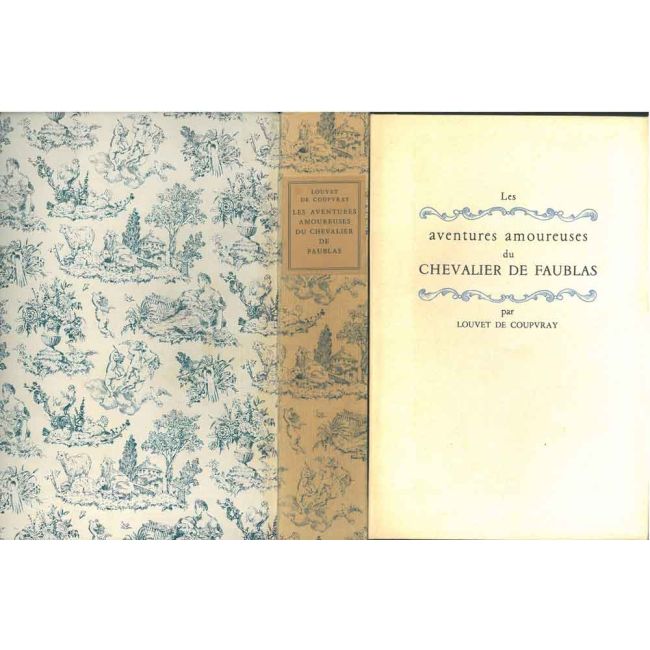 LOUVET
DE COUPVRAY
LES AVENTURES
AMOUREUSES
DU CHEVALIER
DE
FAUBLAS
Les
aventures amoureuses
du
CHEVALIER DE FAUBLAS
par
LOUVET DE COUPVRAY